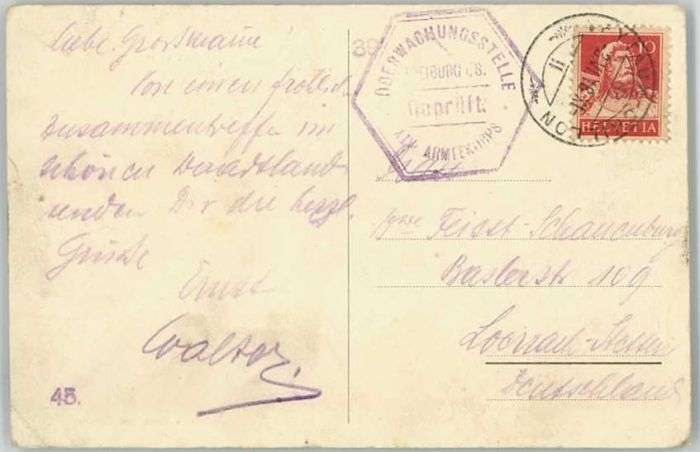 liebe Grossmama
Von einem fröhlich.
Zusammentreffen im
schönen Waadtland
senden Dir die herzl.
Grüsse
Ernst
Walter.
45.
39
ÜBERWACHUNGSSTELLE
FREIBURG i/B.
Geprüft
XIV. ARMEEKORPS
NYON
10
HELVETIA
Frau
Feist-Schauenburg
Baslerstr 109
Loerrach-Stetten
Deutschland